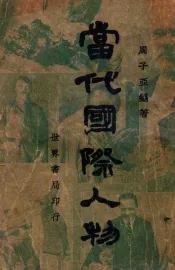 周子亞編著
當代國際人物
世界書局印行